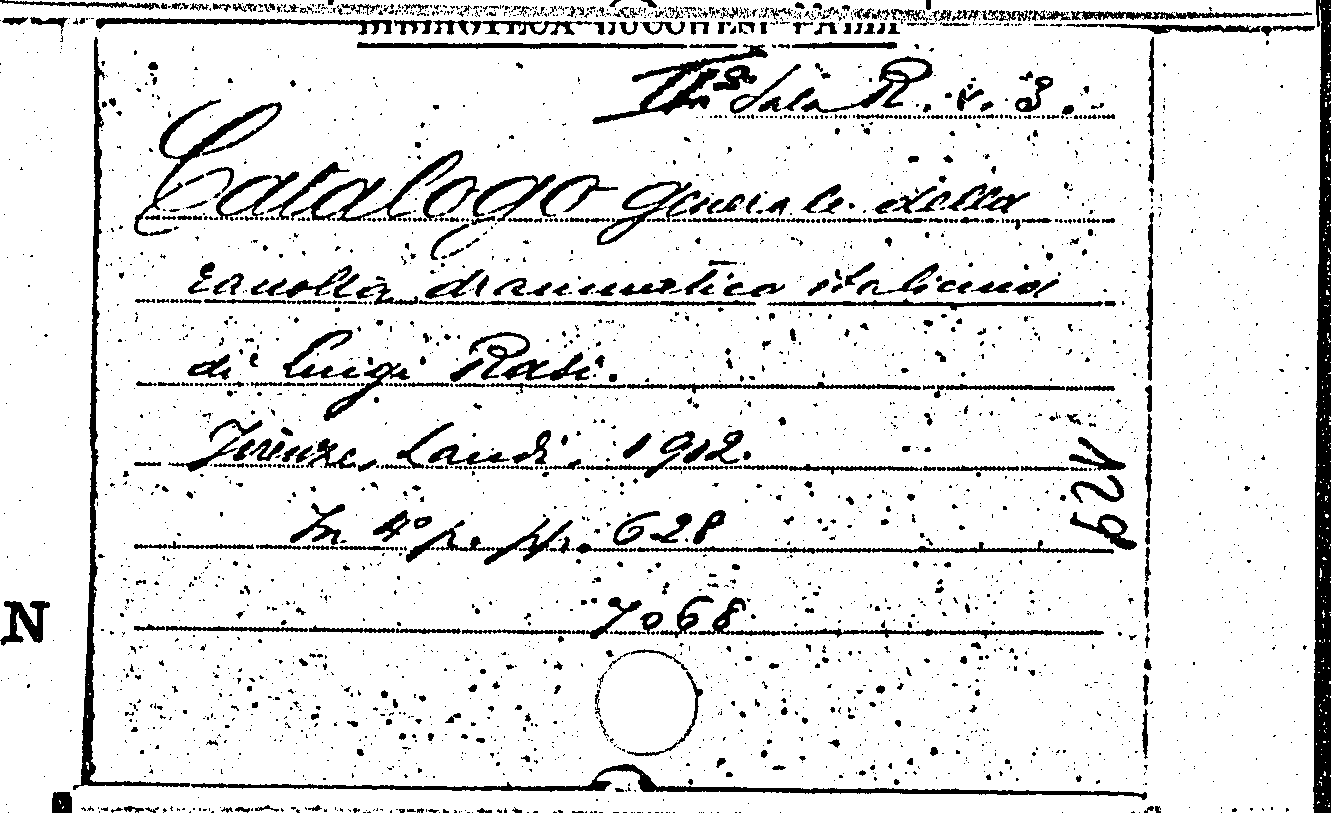 BIBLIOTECA LUCCHESI PALLI
IIa Sala R. V. 3.
Catalogo generale della
raccolta drammatica italiana
di Luigi Rasi.
Firenze, Landi, 1912.
In 4° p. pp. 628
7068
N